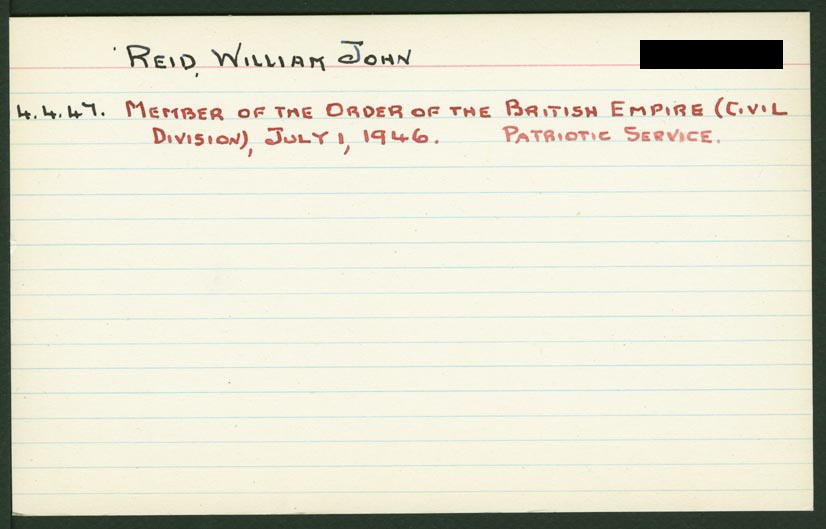 REID, WILLIAM JOHN
4.4.47. MEMBER OF THE ORDER OF THE BRITISH EMPIRE (CIVIL
DIVISION), JULY 1, 1946. PATRIOTIC SERVICE.